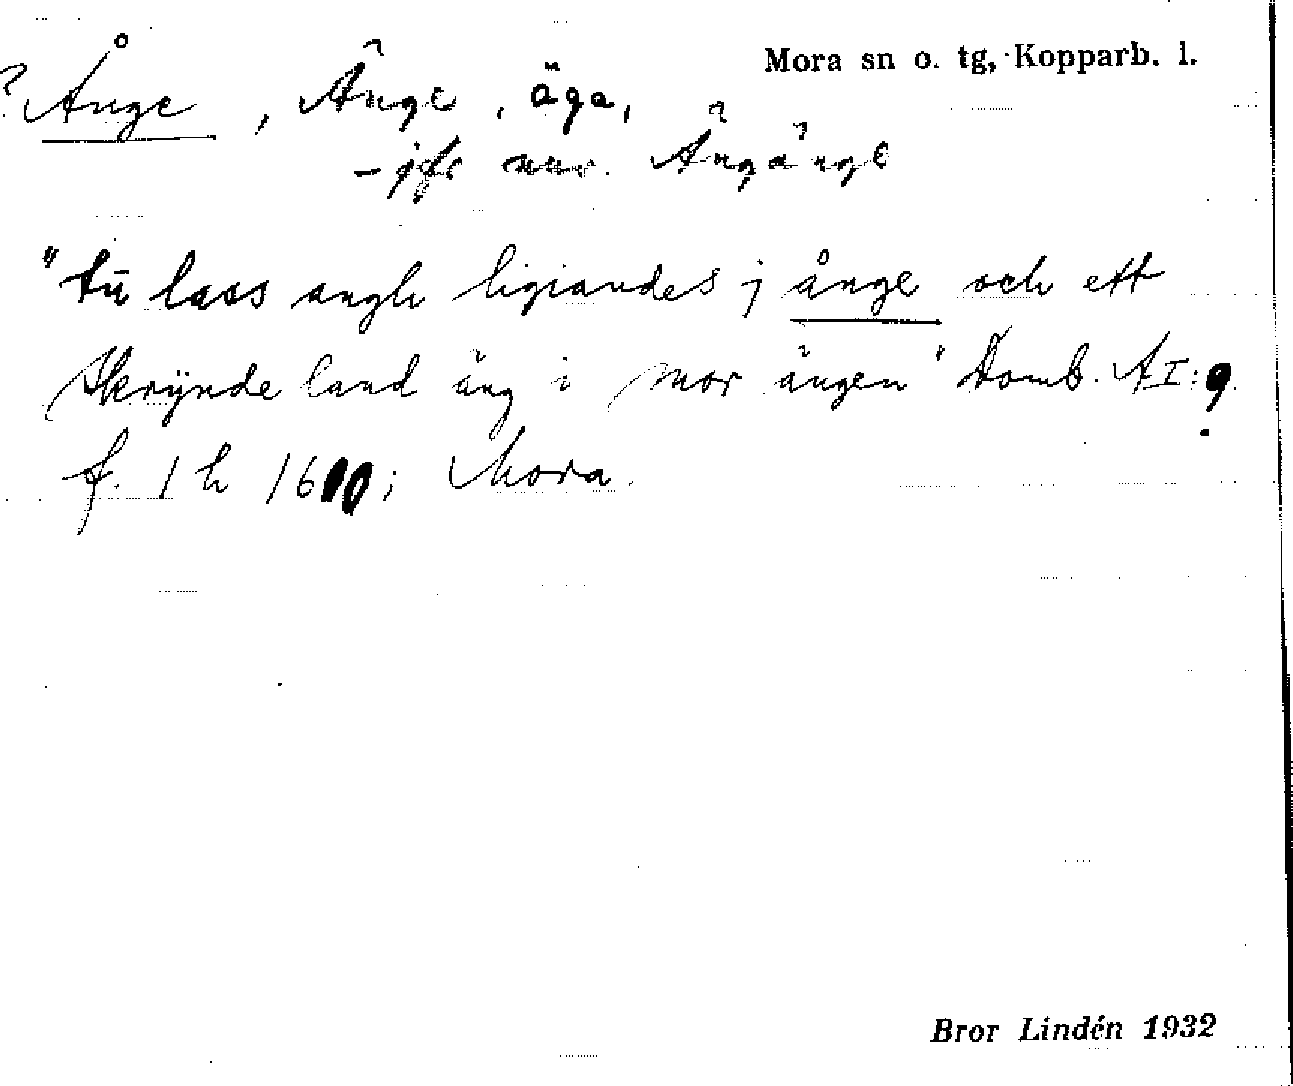 Mora sn o. tg, Kopparb. l.
? Ånge, Änge, äga,
- jfr nuv. Ängänge
"tu lass angh ligiandes j ånge och ett
skrynde land äng i mor ängen" Domb. AI:9.
f. 1 h 1600; Mora.
Bror Lindén 1932